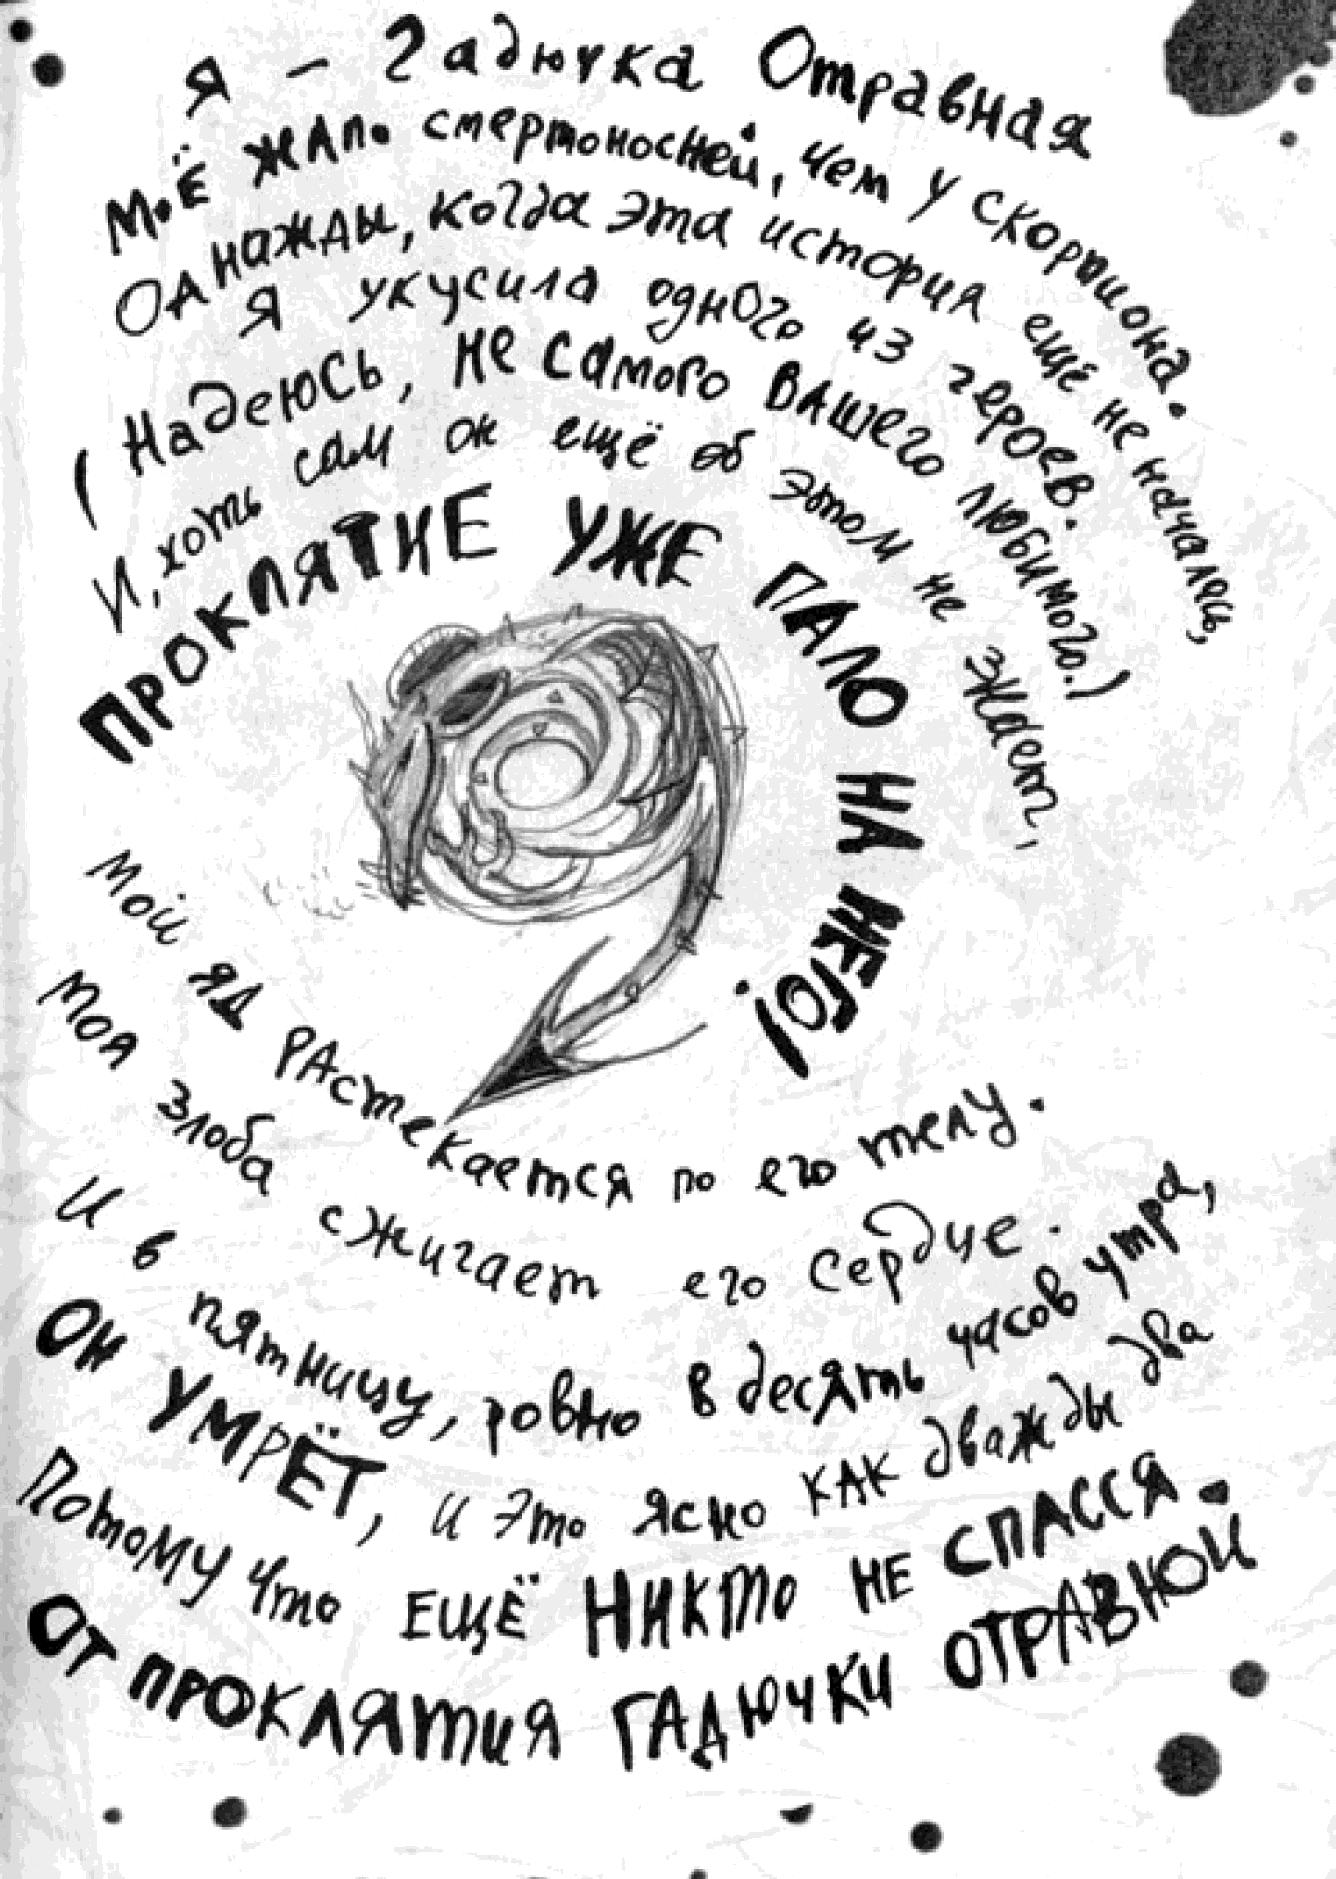 Я – Гадючка Отравная
Моё жало смертоносней, чем у скорпиона.
Однажды, когда эта история ещё не началась,
Я укусила одного из героев.
(Надеюсь, не самого вашего любимого.)
И, хоть сам он ещё об этом не знает,
ПРОКЛЯТИЕ УЖЕ ПАЛО НА НЕГО!
Мой яд растекается по его телу.
Моя злоба сжигает его сердце.
И в пятницу, ровно в десять часов утра,
ОН УМРЁТ, и это ясно как дважды два
Потому что ЕЩЁ НИКТО НЕ СПАССЯ.
ОТ ПРОКЛЯТИЯ ГАДЮЧКИ ОТРАВНОЙ